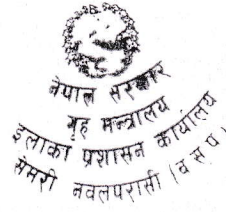 नेपाल सरकार
गृह मन्त्रालय
इलाका प्रशासन कार्यालय
सेमरी नवलपरासी (ब स प)